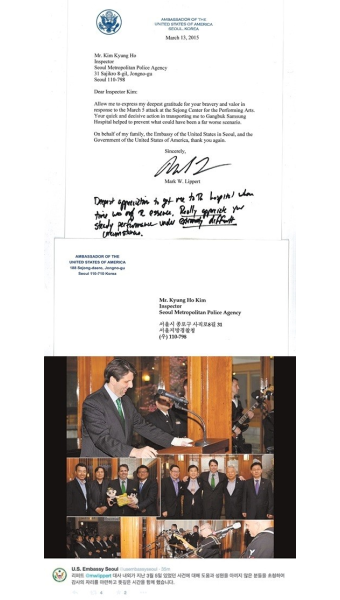 AMBASSADOR OF THE
UNITED STATES OF AMERICA
SEOUL, KOREA
March 13, 2015
Mr. Kim Kyung Ho
Inspector
Seoul Metropolitan Police Agency
31 Sajikro 8-gil, Jongno-gu
Seoul 110-798
Dear Inspector Kim:
Allow me to express my deepest gratitude for your bravery and valor in
response to the March 5 attack at the Sejong Center for the Performing Arts.
Your quick and decisive action in transporting me to Gangbuk Samsung
Hospital helped to prevent what could have been a far worse scenario.
On behalf of my family, the Embassy of the United States in Seoul, and the
Government of the United States of America, thank you again.
Sincerely,
Mark W. Lippert
Deepest appreciation to get me to the hospital when
time was of essence. Really appreciate your
steady performance under extremely difficult
circumstances.
AMBASSADOR OF THE
UNITED STATES OF AMERICA
188 Sejong-daero, Jongno-gu
Seoul 110-710 Korea
Mr. Kyung Ho Kim
Inspector
Seoul Metropolitan Police Agency
서울시 종로구 사직로8길 31
서울지방경찰청
(우) 110-798
U.S. Embassy Seoul @usembassyseoul
리퍼트 @mwlippert 대사 내외가 지난 3월 5일 있었던 사건에 대해 도움과 성원을 아끼지 않은 분들을 초청하여
감사의 자리를 마련하고 뜻깊은 시간을 함께 했습니다.